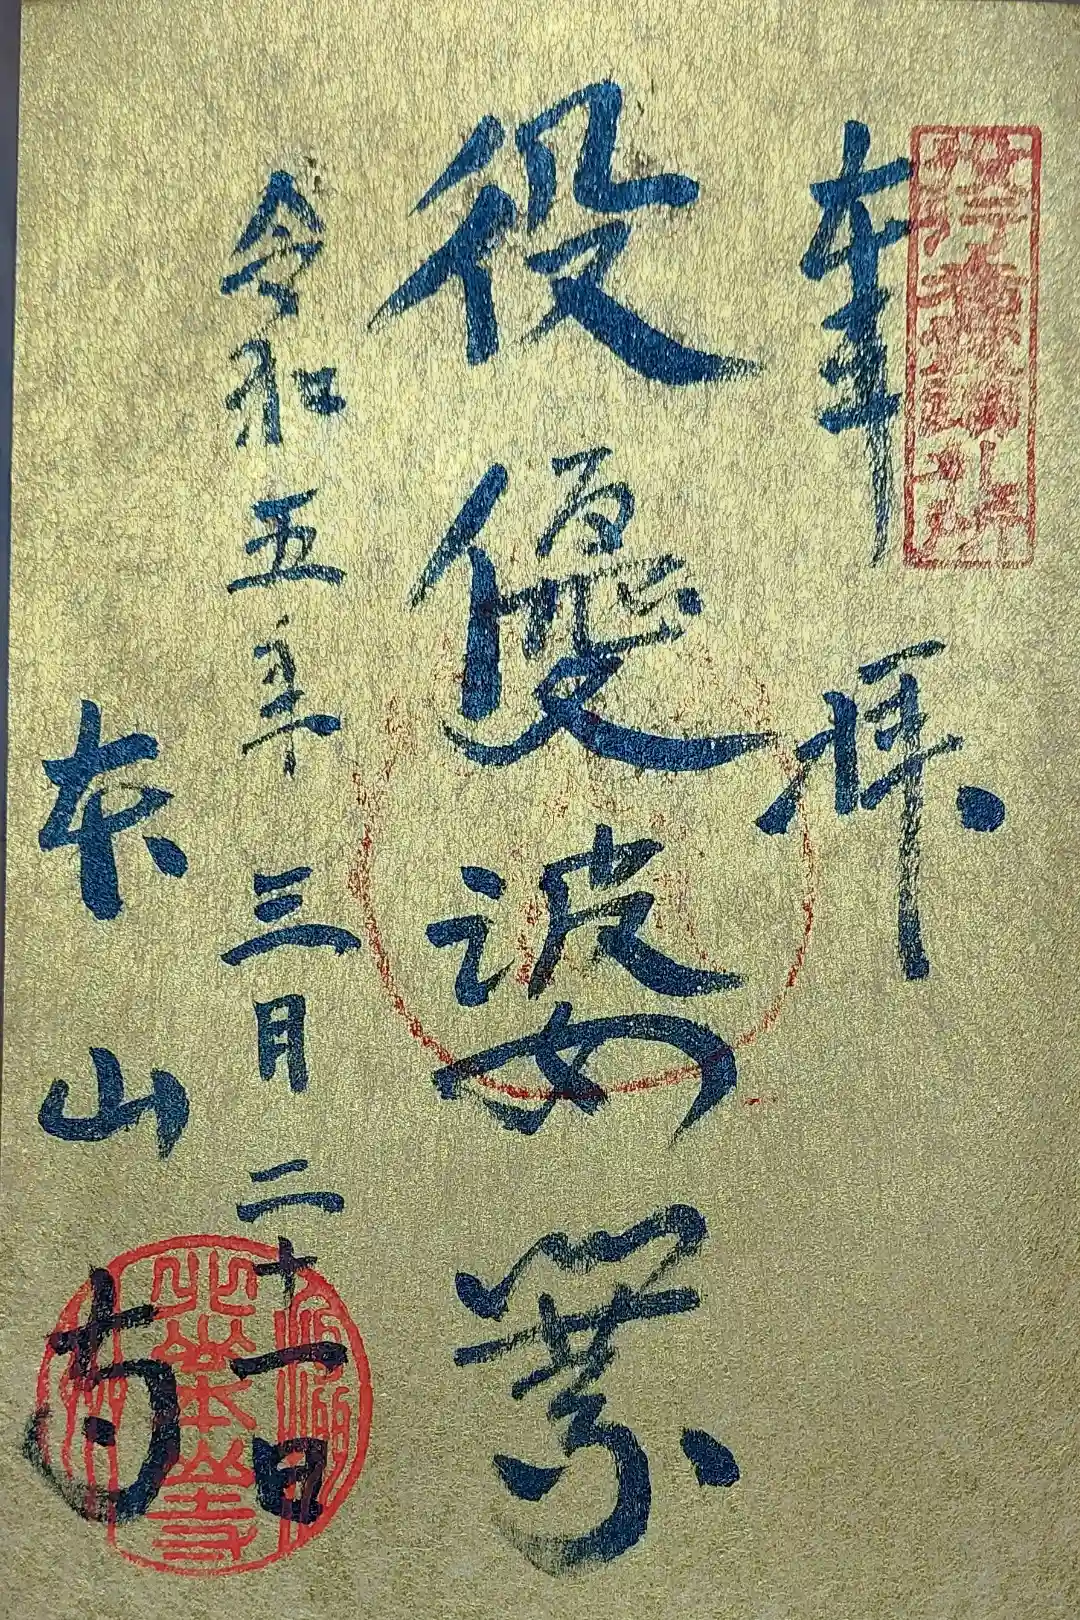 奉拝
役優婆塞
令和五年三月二十一日
本山寺